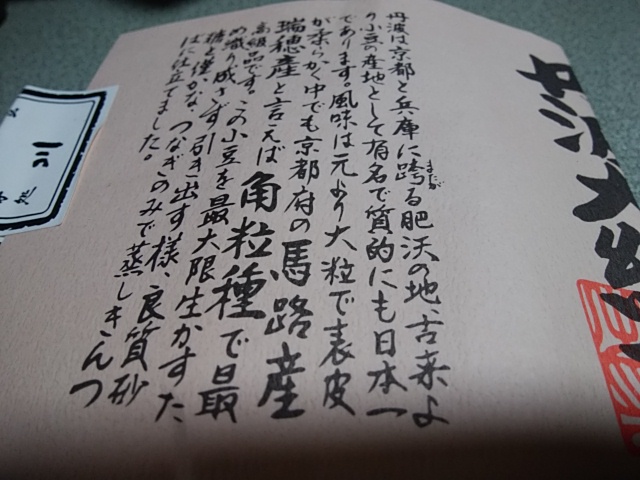 丹波は京都と兵庫に跨る肥沃の地、古来よ
またが
り小豆の産地として有名で質的にも日本一
であります。風味は元より大粒で表皮
が柔らかく中でも京都府の馬路産
瑞穂産と言えば角粒種で最
高級品です。この小豆を最大限生かすた
め織り成さず引き出す様、良質砂
糖と僅かな、つなぎのみで蒸しきんつ
ばに仕立てました。